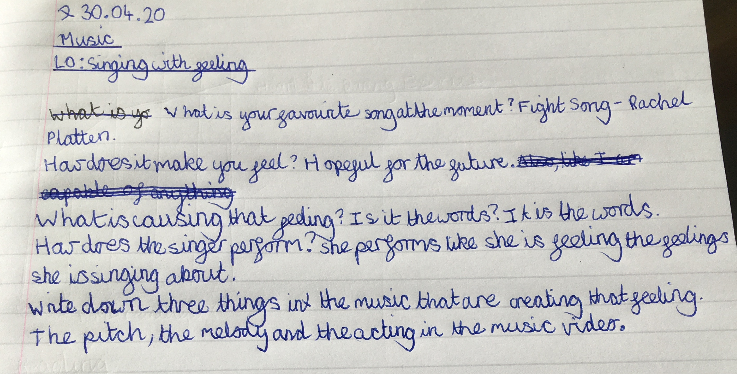 30.04.20
Music
LO: Singing with feeling
What is yo What is your favourite song at the moment? Fight Song - Rachel
Platten.
How does it make you feel? Hopeful for the future. Also, like I am
capable of anything
What is causing that feeling? Is it the words? It is the words.
How does the singer perform? She performs like she is feeling the feelings
she is singing about.
Write down three things in the music that are creating that feeling.
The pitch, the melody and the acting in the music video.